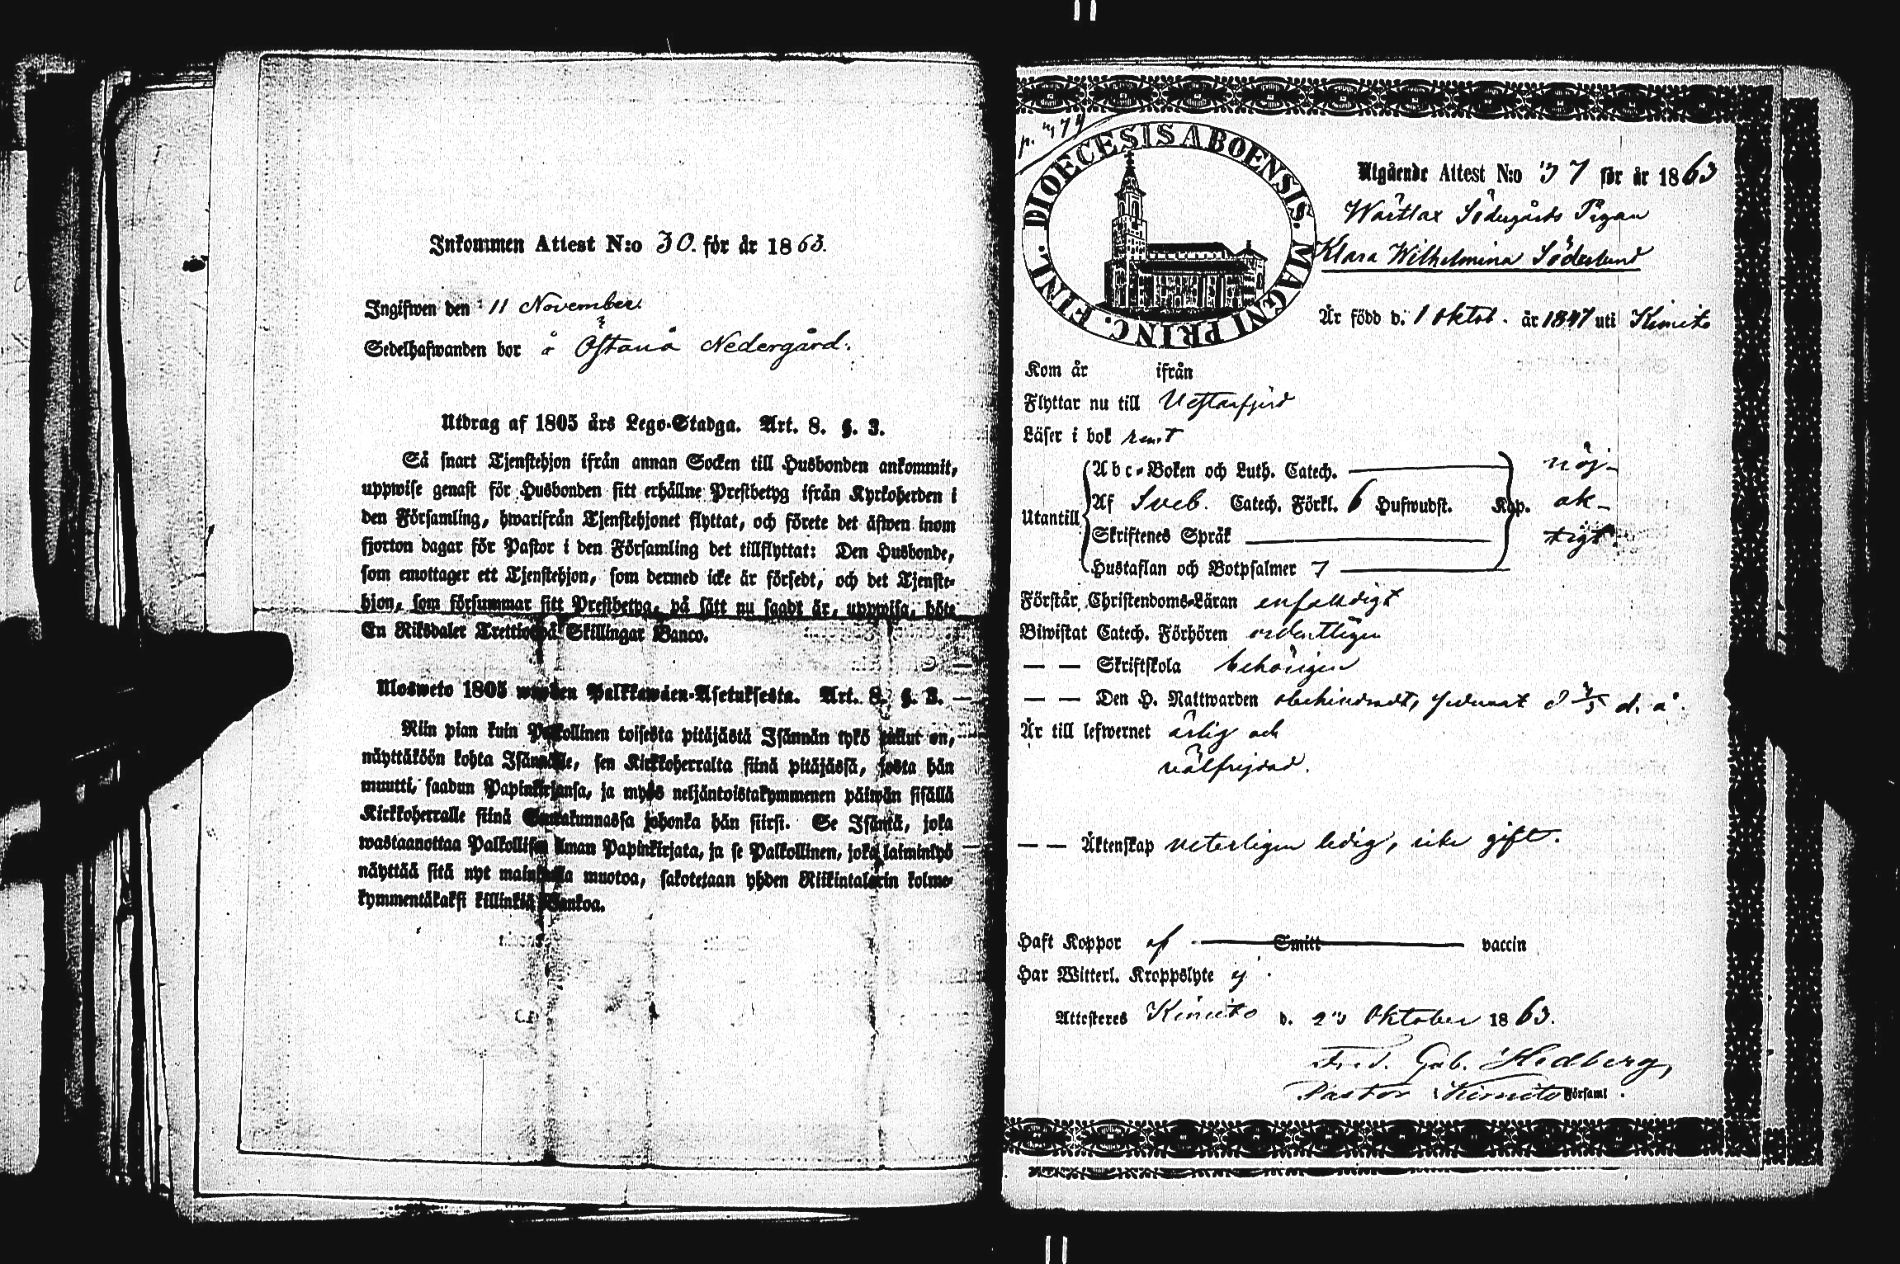 Inkommen Attest N:o 30. för år 1863.
Ingifwen den 11 November.
Sedelhafwanden bor å Östanå Nedergård.
Utdrag af 1805 års Lego-Stadga. Art. 8. §. 3.
Så snart Tjenstehjon ifrån annan Socken till Husbonden ankommit,
uppwise genast för Husbonden sitt erhållne Prestbetyg ifrån Kyrkoherden i
den Församling, hwarifrån Tjenstehjonet flyttat, och förete det äfwen inom
fjorton dagar för Pastor i den Församling det tillflyttat: Den Husbonde,
som emottager ett Tjenstehjon, som dermed icke är försedt, och det Tjenste-
hjon, som försummar sitt Prestbetyg, på sätt nu sagdt är, uppwisa, böte
En Riksdaler Trettiotvå Skillingar Banco.
Ulosweto 1805 wuoden Palkkawäen-Asetuksesta. Art. 8. §. 3.
Niin pian kuin Palkollinen toisesta pitäjästä Isännän tykö tullut on,
näyttäköön kohta Isännälle, sen Kirkkoherralta siinä pitäjässä, josta hän
muutti, saadun Papinkirjansa, ja myös neljäntoistakymmenen päiwän sisällä
Kirkkoherralle siinä Seurakunnassa johonka hän siirsi. Se Isäntä, joka
wastaanottaa Palkollisen ilman Papinkirjata, ja se Palkollinen, joka laiminlyö
näyttää sitä nyt mainitulla muotoa, sakotetaan yhden Riikintalarin kolme-
kymmentäkaksi killinkiä Bankoa.
p. 474
DIOECESIS ABOENSIS. MAGNI PRINC. FINL.
Utgående Attest N:o 37 för år 1863
Wartlax Södergårds Pigan
Klara Wilhelmina Söderlund
Är född d. 1 Oktob. år 1847 uti Kimito
Kom år ifrån
Flyttar nu till Vestanfjerd
Läser i bok rent
Utantill
Abc-Boken och Luth. Catech. nöj-
Af Sveb. Catech. Förkl. 6 Hufwudst. Kap. ak-
Skriftenes Språk tigt.
Hustaflan och Botpsalmer 7
Förstår Christendoms-Läran enfaldigt
Biwistat Catech. Förhören ordentligen
— — Skriftskola behörigen
— — Den H. Nattwarden obehindradt, senast d. 3/5 d. å.
Är till lefwernet ärlig och
välfrejdad.
— — Äktenskap veterligen ledig, icke gift.
Haft Koppor af Smitt vaccin
Har Witterl. Kroppslyte ej
Attesteres Kimito d. 23 Oktober 1863.
Fred. Gab. Hedberg,
Pastor i Kimito Församl.